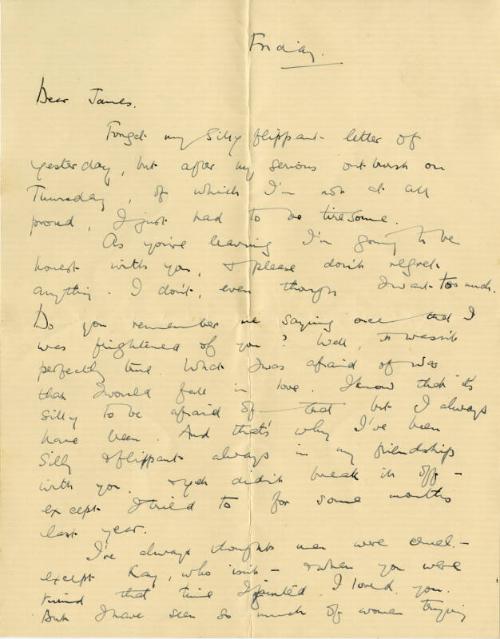 Friday.
Dear James.
Forget my silly flippant letter of
yesterday, but after my serious outburst on
Thursday, of which I'm not at all
proud, I just had to be tiresome.
As you're leaving I'm going to be
honest with you, & please don't regret
anything. I don't, even though I want to much.
Do you remember me saying once that I
was frightened of you? Well, it wasn't
perfectly true. What I was afraid of was
that I would fall in love. I know that it's
silly to be afraid of that but I always
have been. And that's why I've been
silly & flippant always in my friendship
with you. & yet didn't break it off –
except I tried to for some months
last year.
I've always thought men were cruel –
except Ray, who isn't – & when you were
kind that time I fainted I loved you.
But I have seen so much of women trying